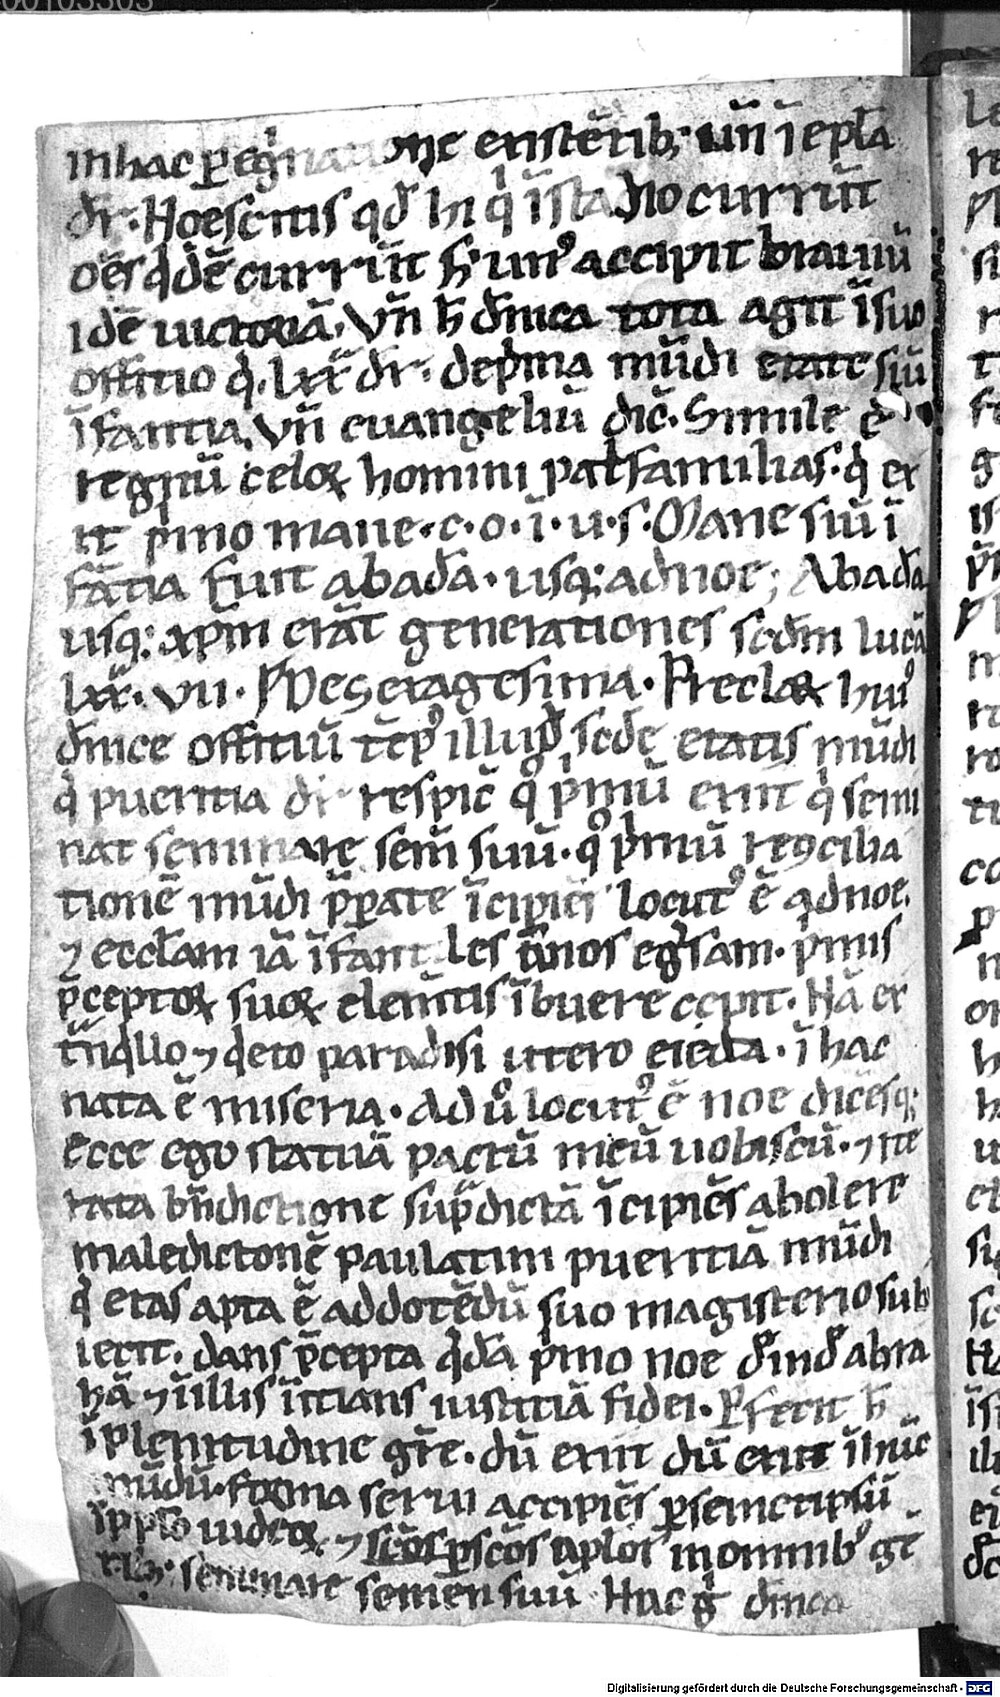 in hac p̲egͥnatione existētib; un̄ ī epl̄a
dr̄. Noescitis qd̄ hii qͥ ī stadio currūt
oēs qͥdē currūt sʒ unꝰ accipit brauiū
idē uictoriā. Vn̄ h̄ dn̄ica tota agit ī suo
offitio q̄. lxx̄ dr̄. de pͥma mūdi etate siū
īfantia. Vn̄ euangeliū dic̄. Simile ē
regnū celoꝝ homini patͥfamilias. qͥ ex
iit pͥmo mane. c. o. ī. u. s. Mane siū ī
fātia fuit ab adā. usq; ad noe; Ab adā
usq; xp̄m erāt generationes scd̄m lucā
lxx. vii. IN Sexagesima. Preclare huiꝰ
dn̄ice offitiū tēpꝰ illiꝰ scd̄e etatis mūdi
q̄ pueritia dr̄ respic̄ qͦ pͥmū exiit qͥ semi
nat seminare sem̄ suū. qͦ pͥmū recōcilia
tionē mūdi p̄parate īcipiēs locutꝰ ē ad noe.
⁊ eccl̄am iā īfantiles ānos egͥssam. pͥmis
p̄ceptoꝝ suoꝝ elem̄tis ībuere cepit. Nā ex
tͣnqͥllo ⁊ qͥeto paradisi utero eiecta. ī hac
nata ē miseria. Ad ū locutꝰ ē noe dicēsq;
Ecce ego statuā pactū meū uobiscū. ⁊ ite
rata bn̄dictione supͣdictā īcipiēs abolere
maledictionē paulatim pueritiā mūdi
q̄ etas apta ē ad docēdū suo magisterio sub
iecit. dans p̄cepta qͥdā pͥmo noe deīde abra
hā ⁊ ī illis ītians iustitiā fidei. P̲fecit h̄
ī plenitudine gr̄e. dū exiit dū exiit ī hūc
mūdū. forma serui accipiēs p̲ semetipsū
ī pp̄lo iudeoꝝ. ⁊ scōs p̲ scōs aplōs in omnibꝰ gē
tib; seminare semen suū Hac gͦ dn̄ica